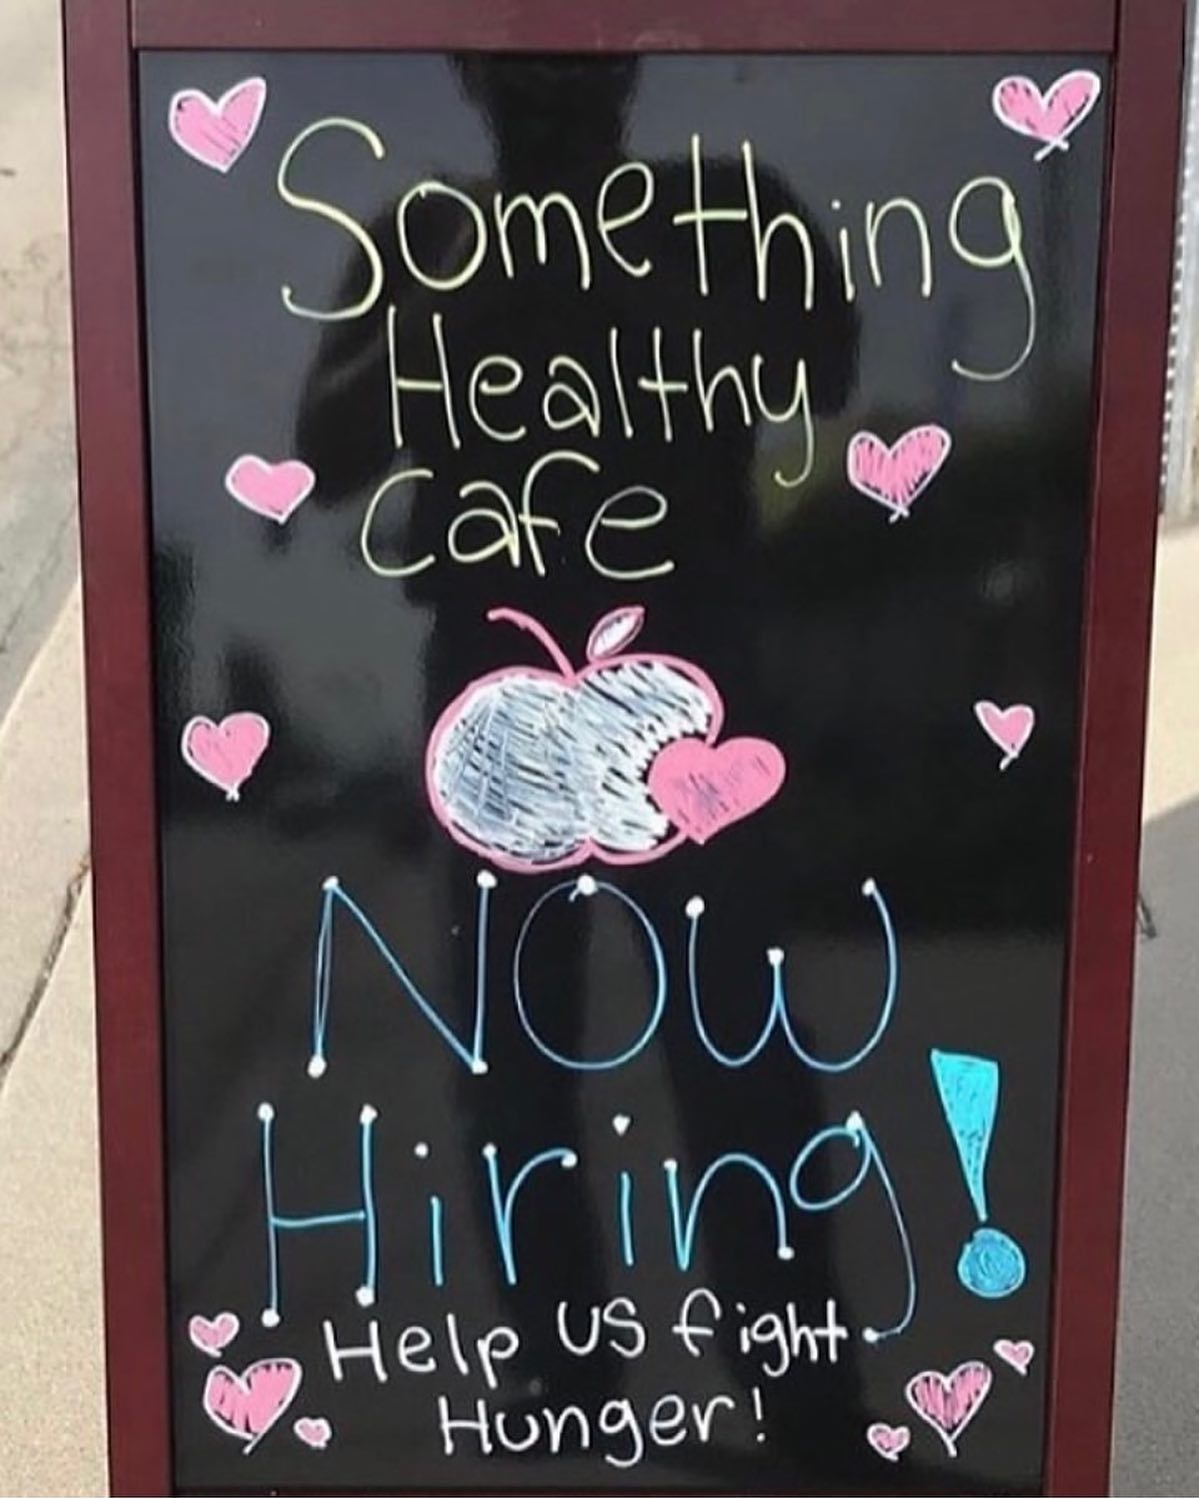 Something
Healthy
Cafe
NOW
Hiring!
Help us fight
Hunger!